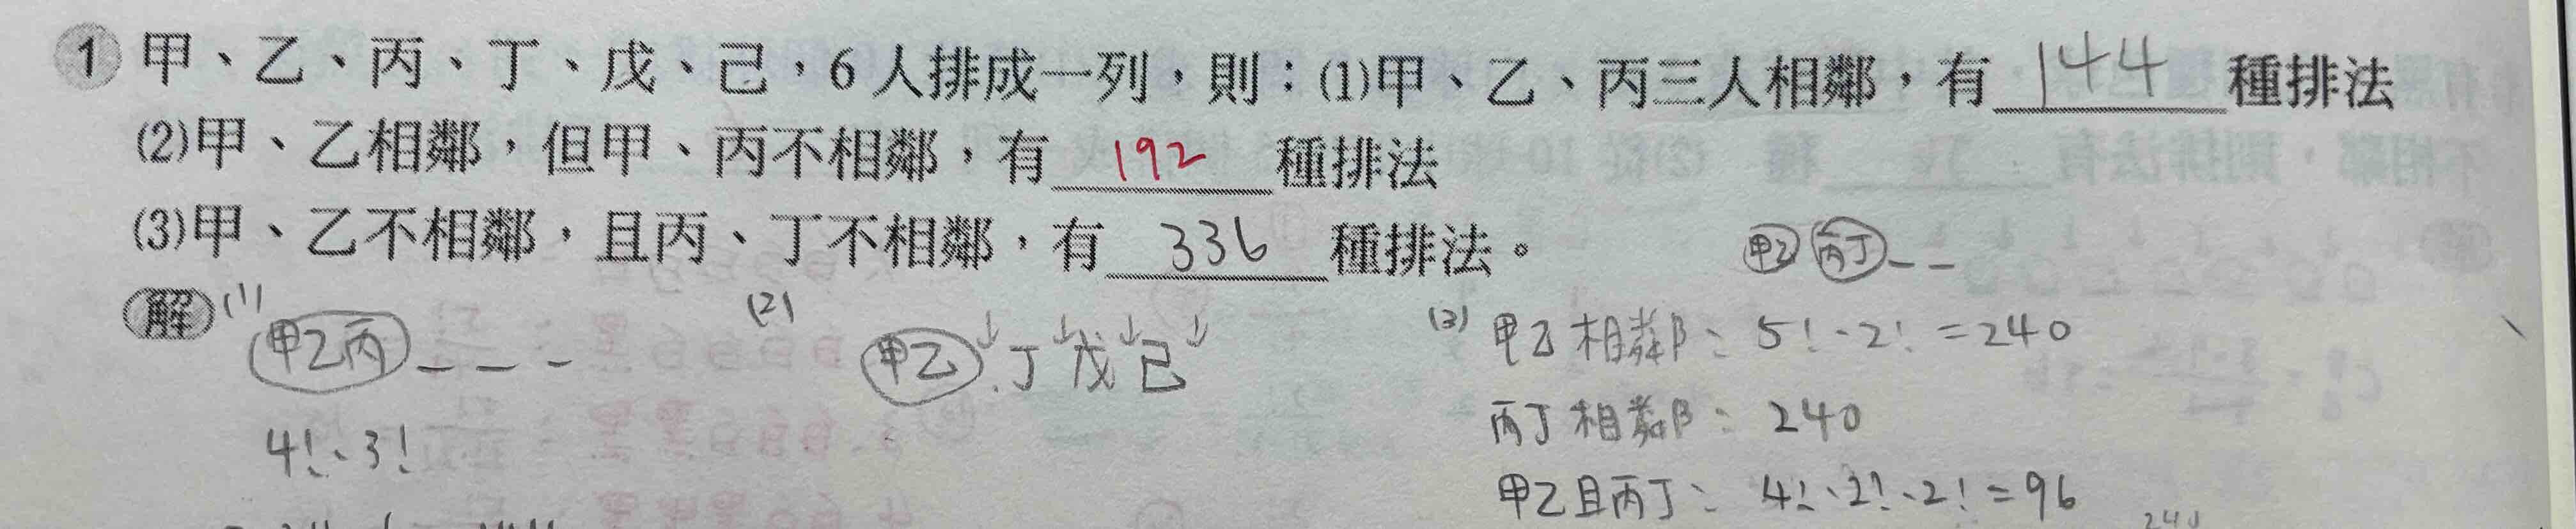 1 甲、乙、丙、丁、戊、己，6人排成一列，則：(1)甲、乙、丙三人相鄰，有 144 種排法
(2)甲、乙相鄰，但甲、丙不相鄰，有 192 種排法
(3)甲、乙不相鄰，且丙、丁不相鄰，有 336 種排法。
甲乙 丙丁 _ _
解 (1) 甲乙丙 _ _ _
4!·3!
(2) 甲乙↓丁↓戊↓己↓
(3) 甲乙相鄰: 5!·2! = 240
丙丁相鄰: 240
甲乙且丙丁: 4!·2!·2! = 96
240